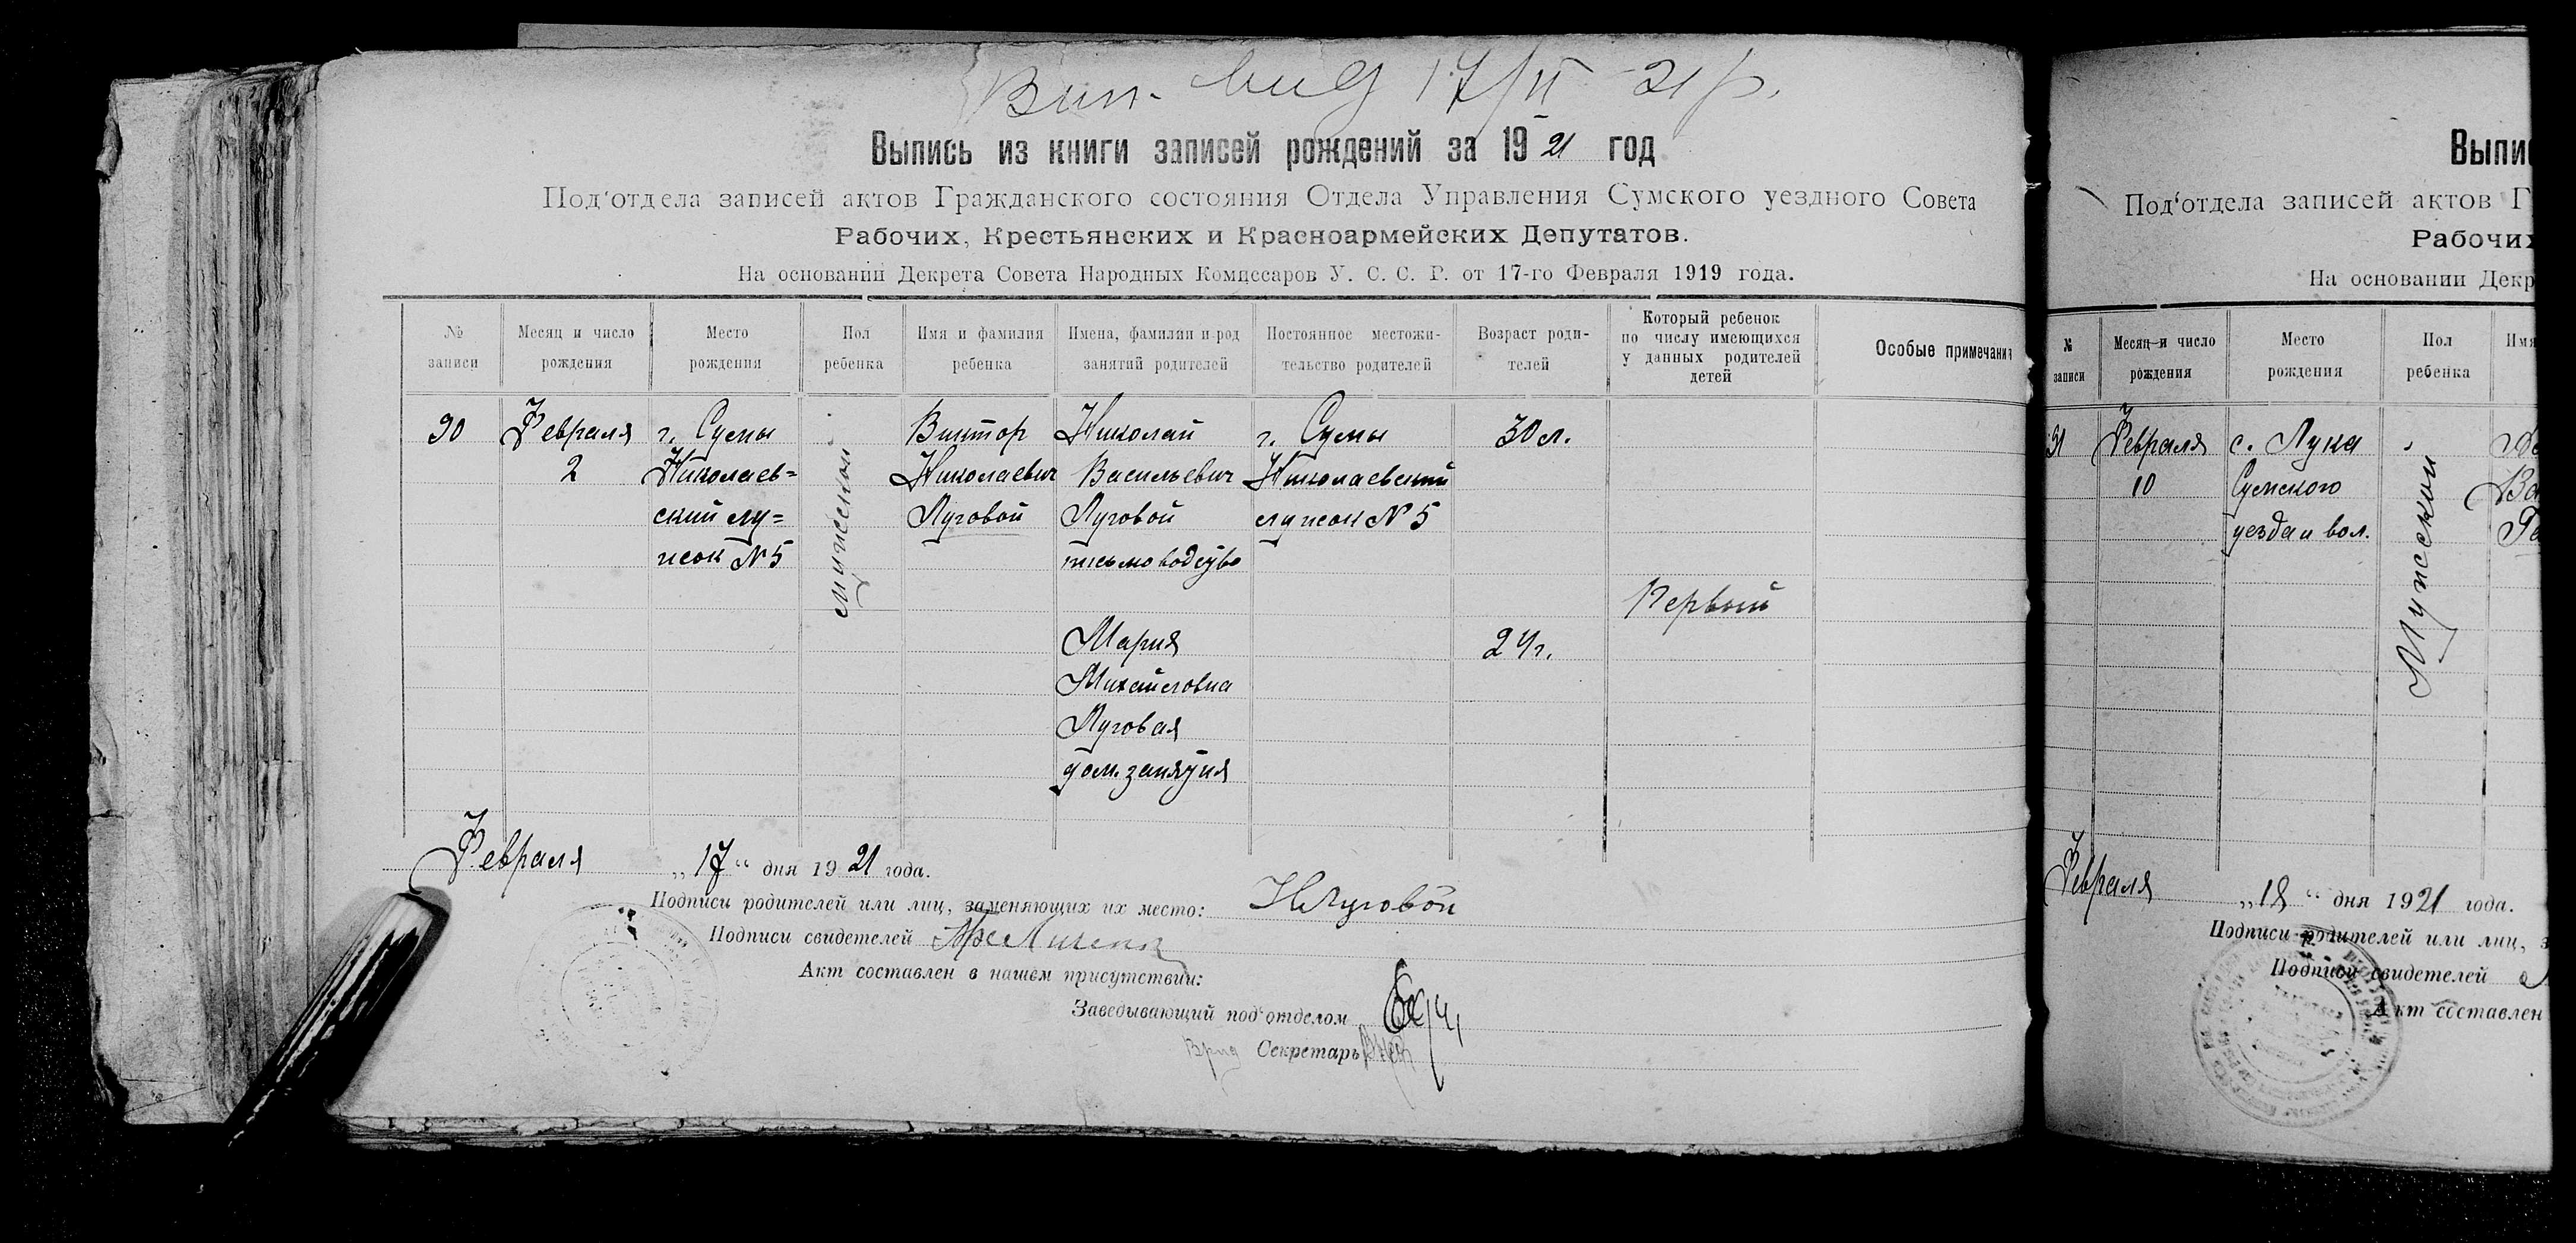 Вип. вид 17/II 21 р.
Выпись из книги записей рождений за 1921 год
Под'отдела записей актов Гражданского состояния Отдела Управления Сумского уездного Совета
Рабочих, Крестьянских и Красноармейских Депутатов.
На основании Декрета Совета Народных Комиссаров У. С. С. Р. от 17-го Февраля 1919 года.
№ записи
Месяц и число рождения
Место рождения
Пол ребенка
Имя и фамилия ребенка
Имена, фамилии и род занятий родителей
Постоянное местожительство родителей
Возраст родителей
Который ребенок по числу имеющихся у данных родителей детей
Особые примечания
90
Февраля
2
г. Сумы
Николаев=
ский лу=
жок № 5
мужской
Виктор
Николаевич
Луговой
Николай
Васильевич
Луговой
письмоводство
Мария
Михайловна
Луговая
дом. занятия
г. Сумы
Николаевский
лужок № 5
30 л.
24 г.
Первый
Февраля „17“ дня 1921 года.
Подписи родителей или лиц, заменяющих их место: Н Луговой
Подписи свидетелей
Акт составлен в нашем присутствии:
Заведывающий под'отделом
Врид Секретарь
Выпи
Под'отдела записей актов Г
Рабочих
На основании Декр
№ записи
Месяц и число рождения
Место рождения
Пол ребенка
Имя
91
Февраля
10
с. Лука
Сумского
уезда и вол.
Мужской
Февраля „18“ дня 1921 года.
Подписи родителей или лиц, з
Подписи свидетелей
Акт составлен